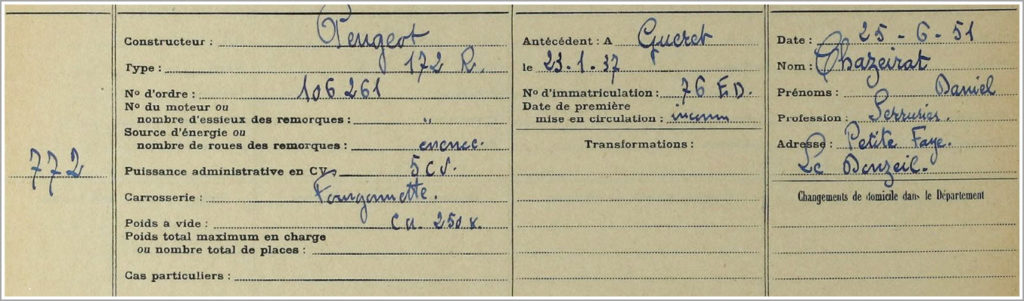 772
Constructeur : Peugeot
Type : 172 R.
Nº d'ordre : 106 261
Nº du moteur ou
nombre d'essieux des remorques : "
Source d'énergie ou
nombre de roues des remorques : essence.
Puissance administrative en CV 5 CV.
Carrosserie : Fourgonnette.
Poids à vide : CU. 250 K.
Poids total maximum en charge
ou nombre total de places :
Cas particuliers :
Antécédent : A Gueret
le 23-1-37
Nº d'immatriculation : 76 ED.
Date de première
mise en circulation : inconnu
Transformations :
Date : 25-6-51
Nom : Chazeirat
Prénoms : Daniel
Profession : Serrurier.
Adresse : Petite Faye.
Le Donzeil.
Changements de domicile dans le Département